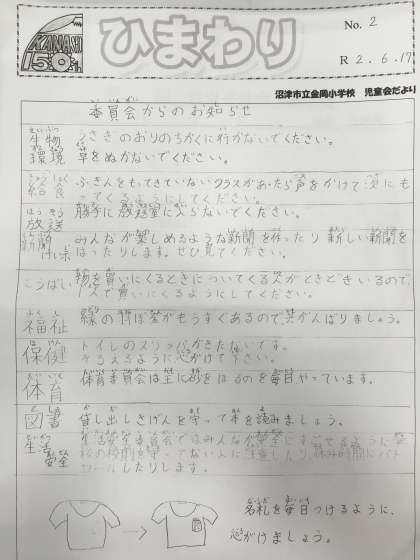 KANAOKA
150th
ひまわり
No. 2
R 2.6.17
沼津市立金岡小学校 児童会だより
委員会からのお知らせ
生物環境 うさぎのおりのちかくに行かないでください。
草をぬかないでください。
給食 ふきんをもってきていないクラスがあったら声をかけて次にも
ってくるようにしてください。
放送 勝手に放送室に入らないでください。
新聞けいじ みんなが楽しめるような新聞を作ったり新しい新聞を
はったりします。ぜひ見てください。
こうばい 物を買いにくるときについてくる人がときどきいるので、
1人で買いにくるようにしてください。
福祉 緑の羽ぼ金がもうすぐあるので、共がんばりましょう。
保健 トイレのスリッパがきたないです。
そろえるように心がけて下さい。
体育 体育委員会は主に砂をほるのを毎日やっています。
図書 貸し出しきげんを守って本を読みましょう。
生活安全 生活安全委員会ではみんなが安全にすごせるように学
校の規則を守ってない人に注意したり、休み時間にパト
ロールしたりします。
名札を毎日つけるように、
心がけましょう。